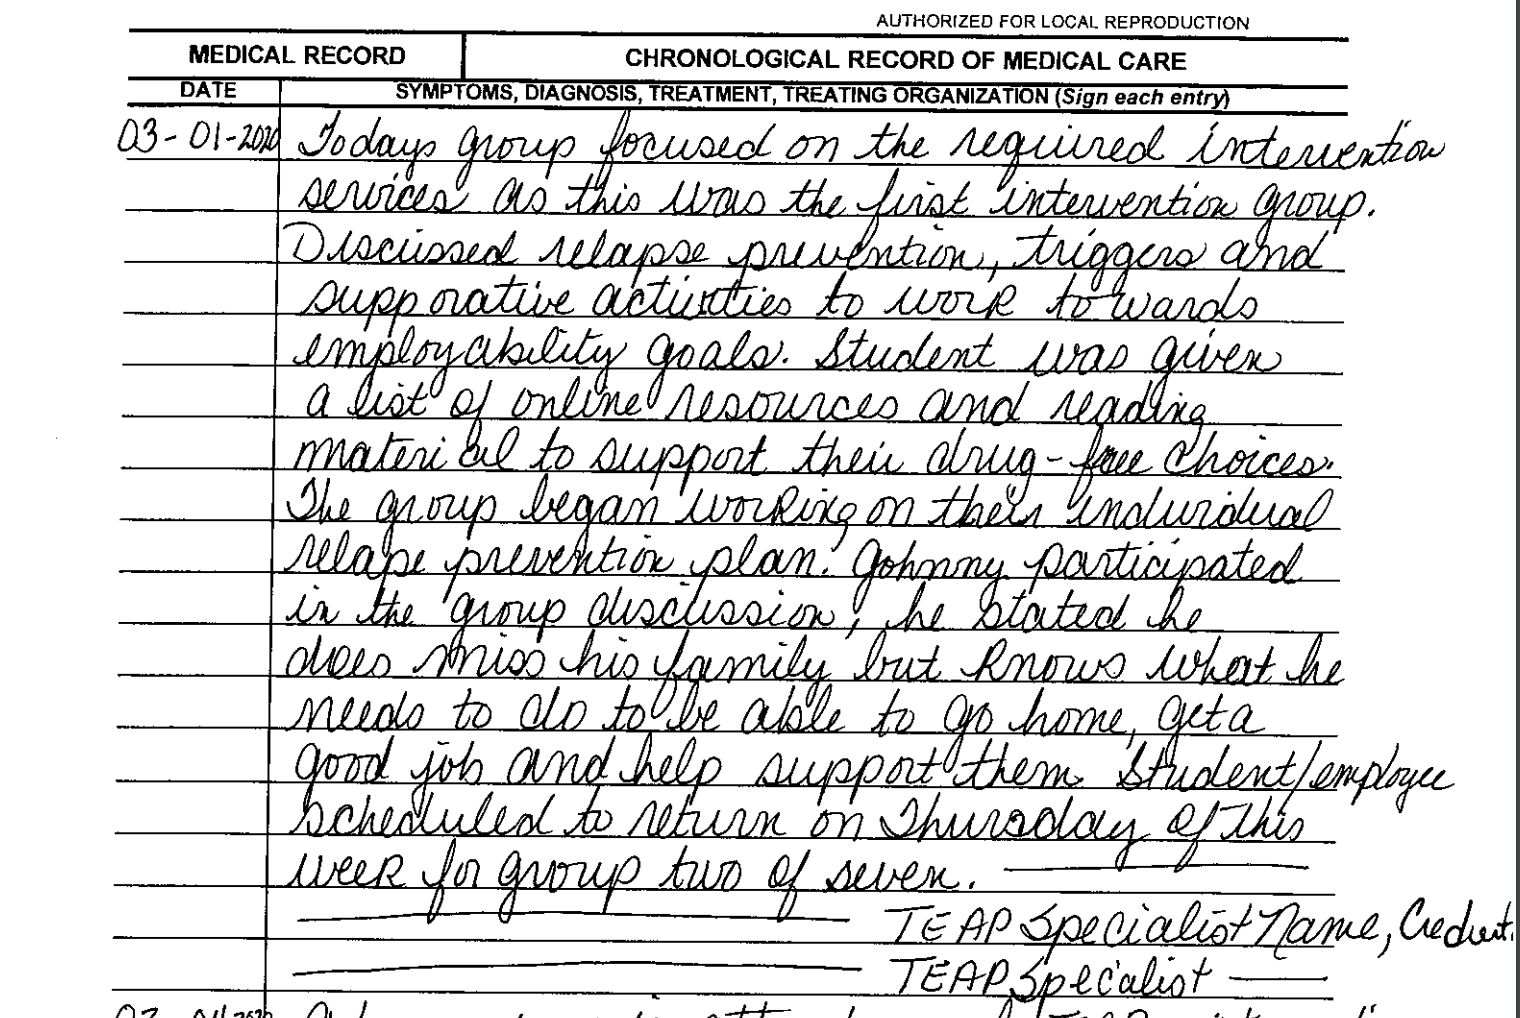 AUTHORIZED FOR LOCAL REPRODUCTION
MEDICAL RECORD CHRONOLOGICAL RECORD OF MEDICAL CARE
DATE SYMPTOMS, DIAGNOSIS, TREATMENT, TREATING ORGANIZATION (Sign each entry)
03-01-2020 Todays group focused on the required intervention
services as this was the first intervention group.
Discussed relapse prevention, triggers and
supporative activities to work towards
employability goals. Student was given
a list of online resources and reading
material to support their drug-free choices.
The group began working on their individual
relape prevention plan. Johnny participated
in the group discussion, he stated he
does miss his family but knows what he
needs to do to be able to go home, get a
good job and help support them. Student/employee
scheduled to return on Thursday of this
week for group two of seven.
TEAP Specialist Name, Credent.
TEAP Specialist